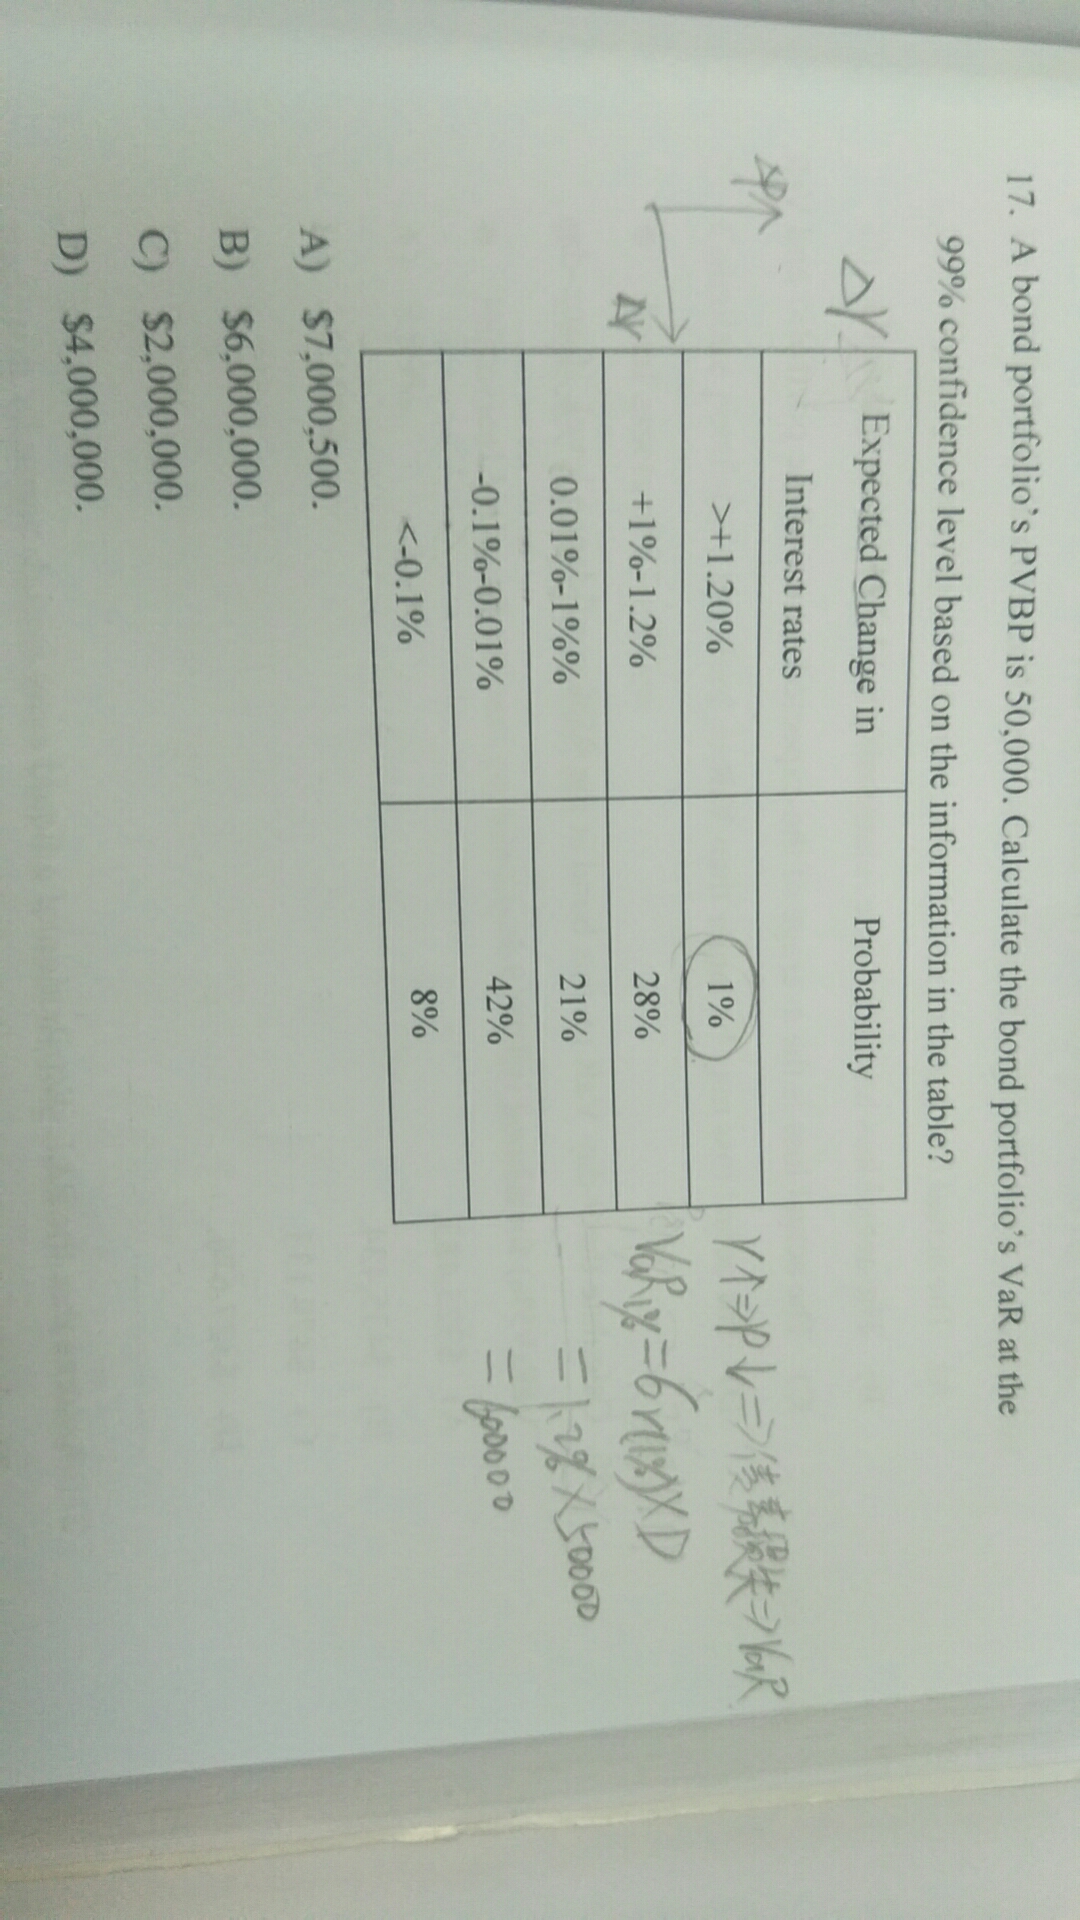 17. A bond portfolio's PVBP is 50,000. Calculate the bond portfolio's VaR at the
99% confidence level based on the information in the table?
Expected Change in Interest rates Probability
>+1.20% 1%
+1%-1.2% 28%
0.01%-1%% 21%
-0.1%-0.01% 42%
<-0.1% 8%
A) $7,000,500.
B) $6,000,000.
C) $2,000,000.
D) $4,000,000.
ΔY
ΔP↑
ΔY
Y↑⇒P↓⇒债券损失⇒VaR
=1.2%×50000
=600000